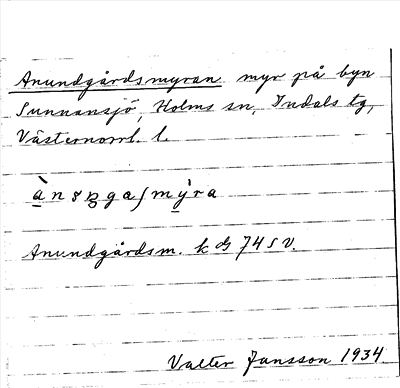 Anundgårdsmyran myr på byn
Sunnansjö, Holms sn, Indals tg,
Västernorrl. l.
Anundgårdsm. k 74 SV.
Valter Jansson 1934